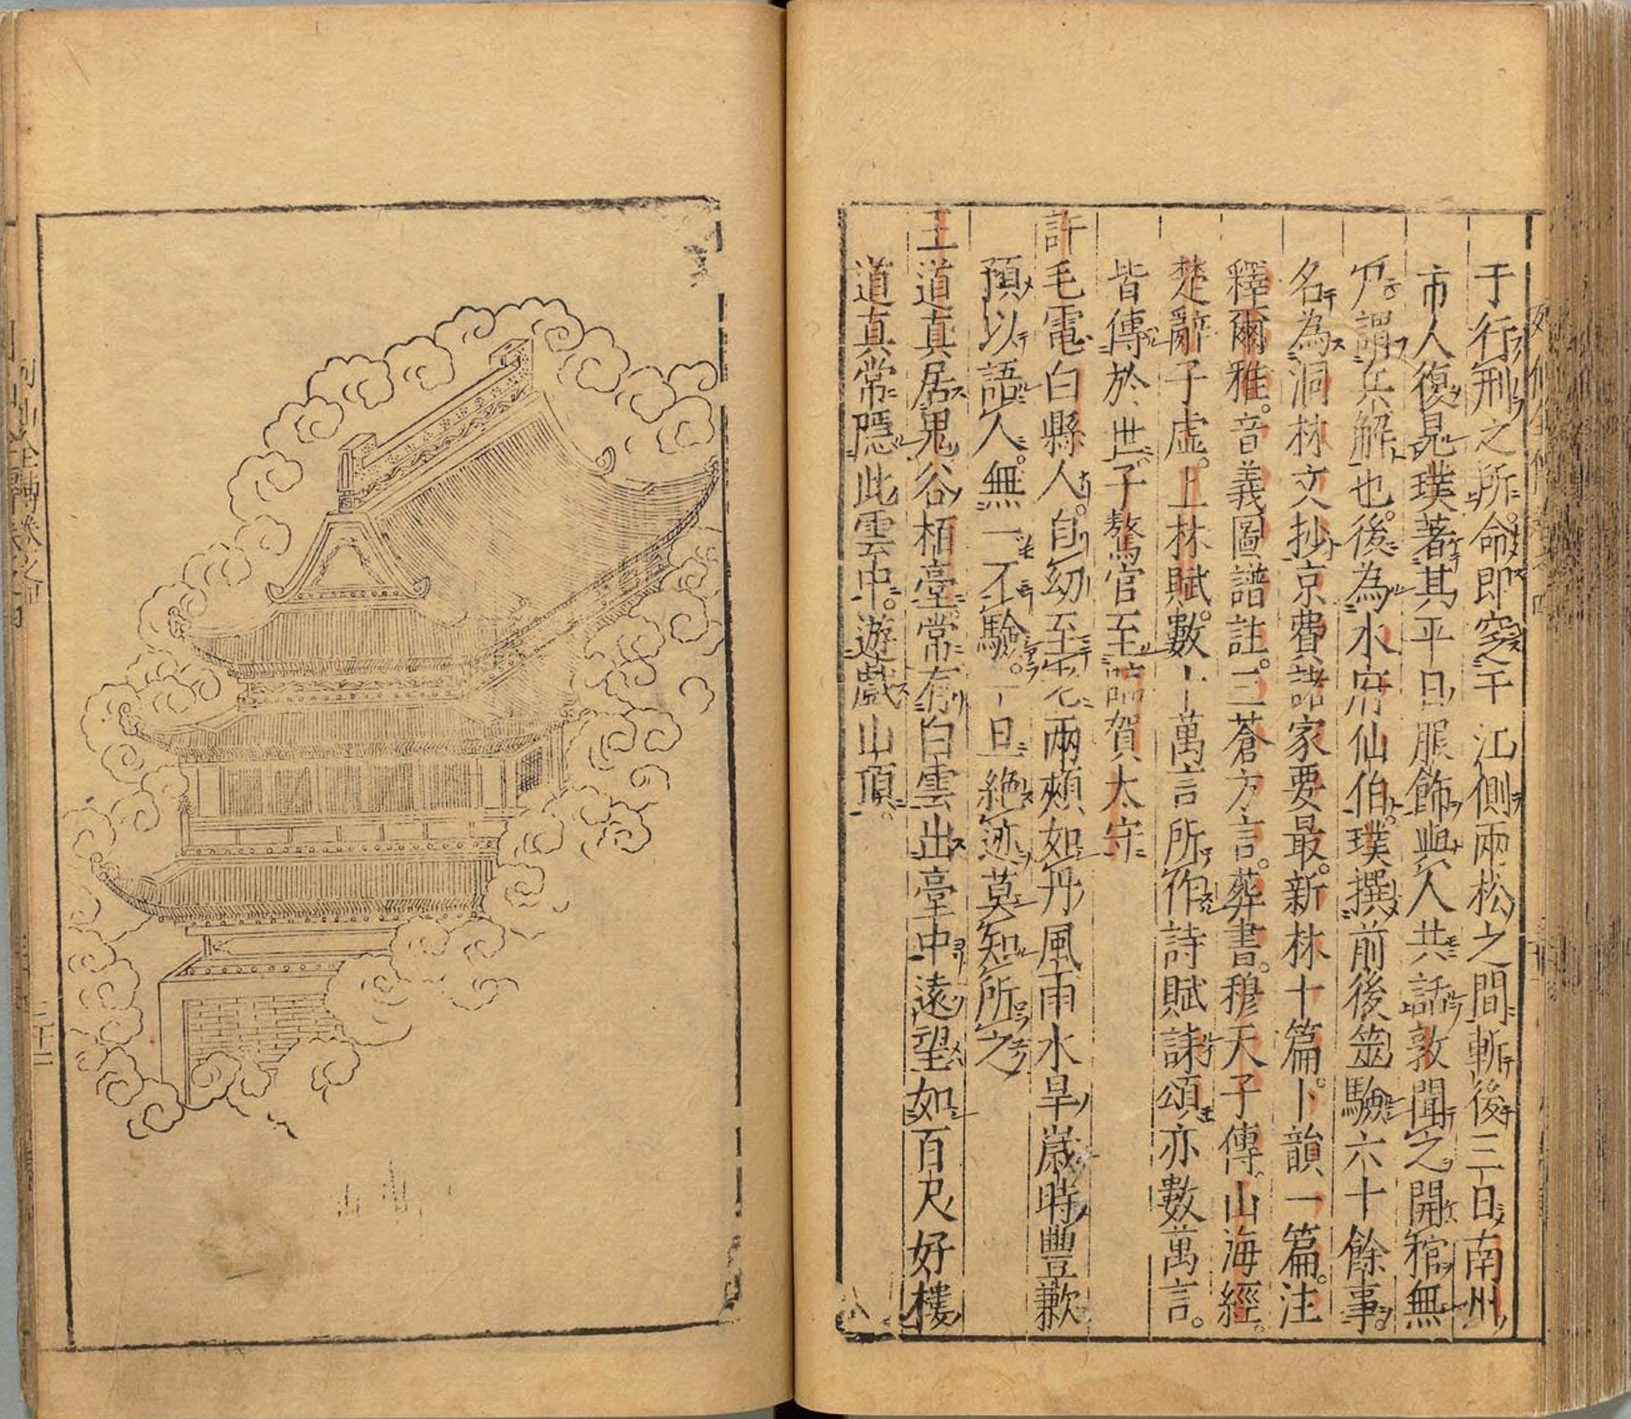 于行刑之所命即窆于江側兩松之間斬後三日南州
市人復見璞著其平日服飾與人共話敦聞之開棺無
尸謂兵解也後為水府仙伯璞撰前後筮驗六十餘事
名為洞林文抄京費諸家要最新林十篇卜韻一篇注
釋爾雅音義圖譜註三蒼方言葬書穆天子傳山海經
楚辭子虛上林賦數十萬言所作詩賦誄頌亦數萬言
皆傳於世子驁官至臨賀太守
許毛電白縣人自幼至老兩頰如丹風雨水旱歲時豐歉
預以語人無一不驗一日絕迹莫知所之
王道真居鬼谷栢臺常有白雲出臺中遠望如百尺好樓
道真常隱此雲中遊戲山頂
列仙全傳卷之四
三十二